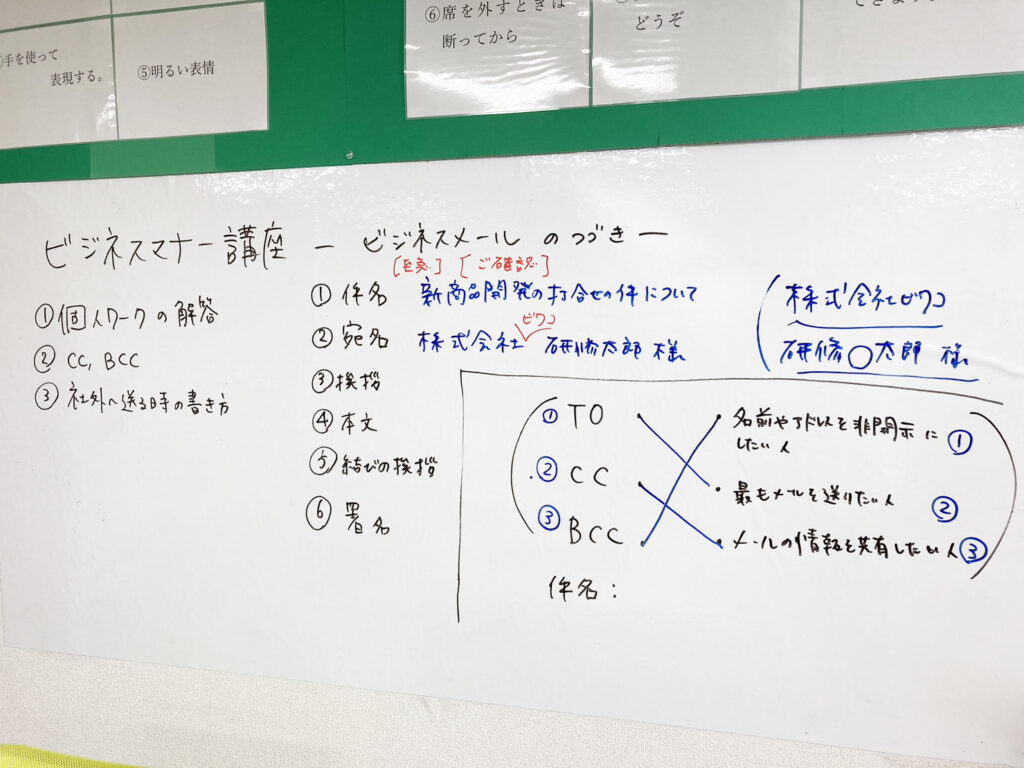 手を使って
表現する。
⑤明るい表情
⑥席を外すときは
断ってから
どうぞ
ビジネスマナー講座 ー ビジネスメール のつづき ー
①個人ワークの解答
② CC, BCC
③ 社外へ送る時の書き方
[至急] [ご確認]
① 件名 新商品開発の打合せの件について
ビワコ
② 宛名 株式会社 研修太郎 様
③ 挨拶
④ 本文
⑤ 結びの挨拶
⑥ 署名
株式会社ビワコ
研修○太郎 様
① TO
② CC
③ BCC
名前やアドレスを非開示に
したい人 ①
最もメールを送りたい人 ②
メールの情報を共有したい人 ③
件名: